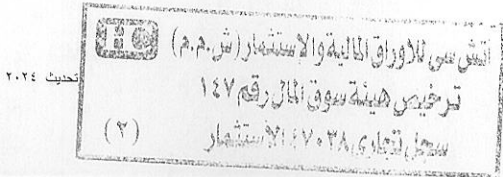 اتش سى للاوراق المالية والاستثمار (ش.م.م)
ترخيص هيئة سوق المال رقم ١٤٧
سجل تجارى ٤٧٠٣٨ الاستثمار
(٣)
تحديث ٢٠٢٤